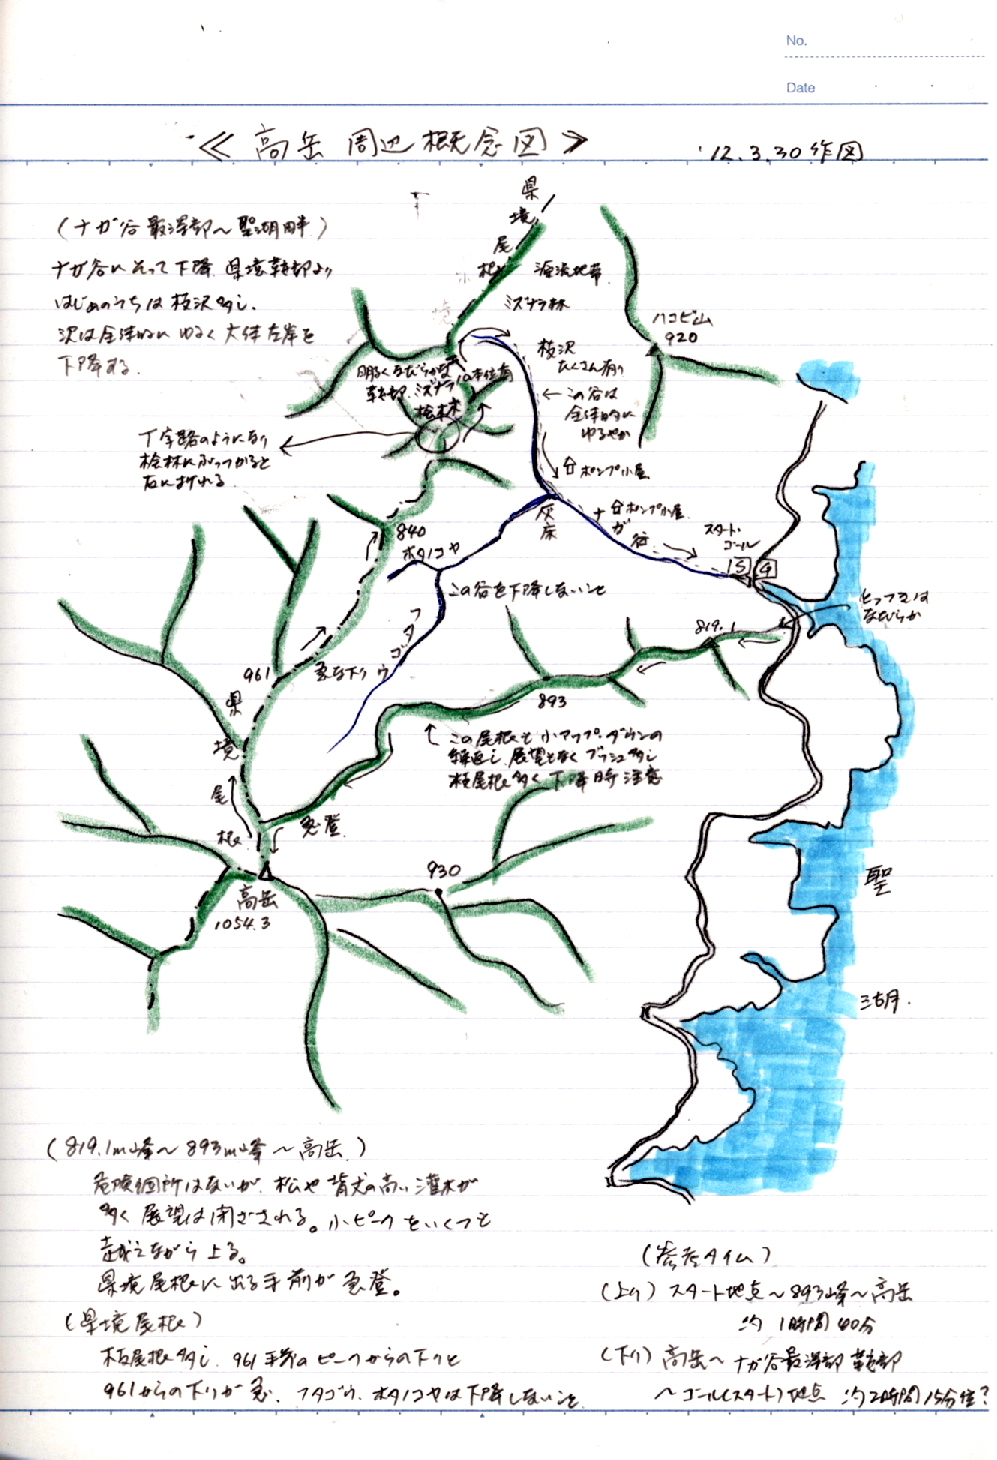 No.
Date
≪ 高岳 周辺 概念図 ≫
'12.3.30 作図
(ナガ谷最深部〜聖湖畔)
ナガ谷にそって下降 県境鞍部より
はじめのうちは枝沢多し.
沢は全体的にゆるく 大体左岸を
下降する.
県境尾根
源流地帯
ミズナラ林
ハコビ山
920
枝沢
たくさん有り
← この谷は
全体的に
ゆるやか
明るくなだらかな
鞍部. ミズナラ
桧林
丁字路のようになり
桧林にぶつかると
左に折れる.
分 ポンプ小屋
灰床
分 ポンプ小屋
ナガ谷
スタート.
ゴール
840
ホタノコヤ
この谷を下降しないこと
フタゴウ
急な下り
961
819.1
ヒラフマは
なだらか
県境尾根
893
この尾根も小アップダウンの
繰返し. 展望もなく ブッシュ多し
枝尾根多く 下降時注意
急登
高岳
1054.3
930
聖湖
(819.1m峰〜893m峰〜高岳)
危険個所はないが. 松や背丈の高い灌木が
多く展望は閉ざされる。小ピークをいくつも
越えながら上る。
県境尾根に出る手前が急登。
(県境尾根)
枝尾根多し. 961手前のピークからの下りと
961からの下りが急. フタゴウ. ホタノコヤは下降しないこと
(参考タイム)
(上り) スタート地点〜893峰〜高岳
約 1時間40分
(下り) 高岳〜ナガ谷最深部 鞍部
〜ゴール(スタート)地点 約2時間15分位?